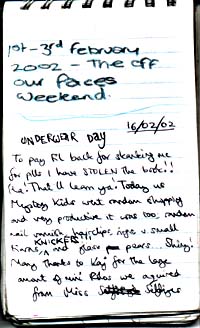 1st - 3rd february
2002 - The off
our faces
weekend.
UNDERWEAR DAY
16/02/02
To pay Fil back for skanking me
for pills I have STOLEN the book!!
Ha! That'll learn ya! Today us
Mystery Kids went random shopping
and very productive it was too, random
nail varnish, hairclips, rings & small
tiaras, KNICKERS!!, and glass pens. Shiny!
Many Thanks to Kaj for the large
amount of
we acquired
from Miss